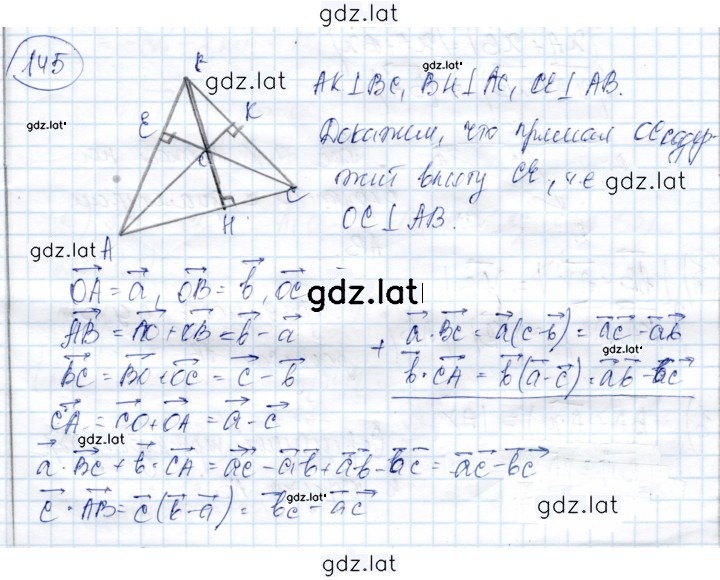 gdz.lat
145
gdz.lat
gdz.lat
gdz.lat
B
K
E
O
C
H
A
gdz.lat
AK⊥BC, BH⊥AC, CE⊥AB.
Докажем, что прямая OC содер-
жит высоту CE, т.е
gdz.lat
OC⊥AB.
OA = a, OB = b, OC
gdz.lat
AB = AO + OB = b - a
BC = BO + OC = c - b
CA = CO + OA = a - c
gdz.lat
+ a · BC = a(c - b) = ac - ab
gdz.lat
b · CA = b(a - c) = ab - bc
a · BC + b · CA = ac - ab + ab - bc = ac - bc
c · AB = c(b - a) = bc - ac
gdz.lat
gdz.lat
gdz.lat